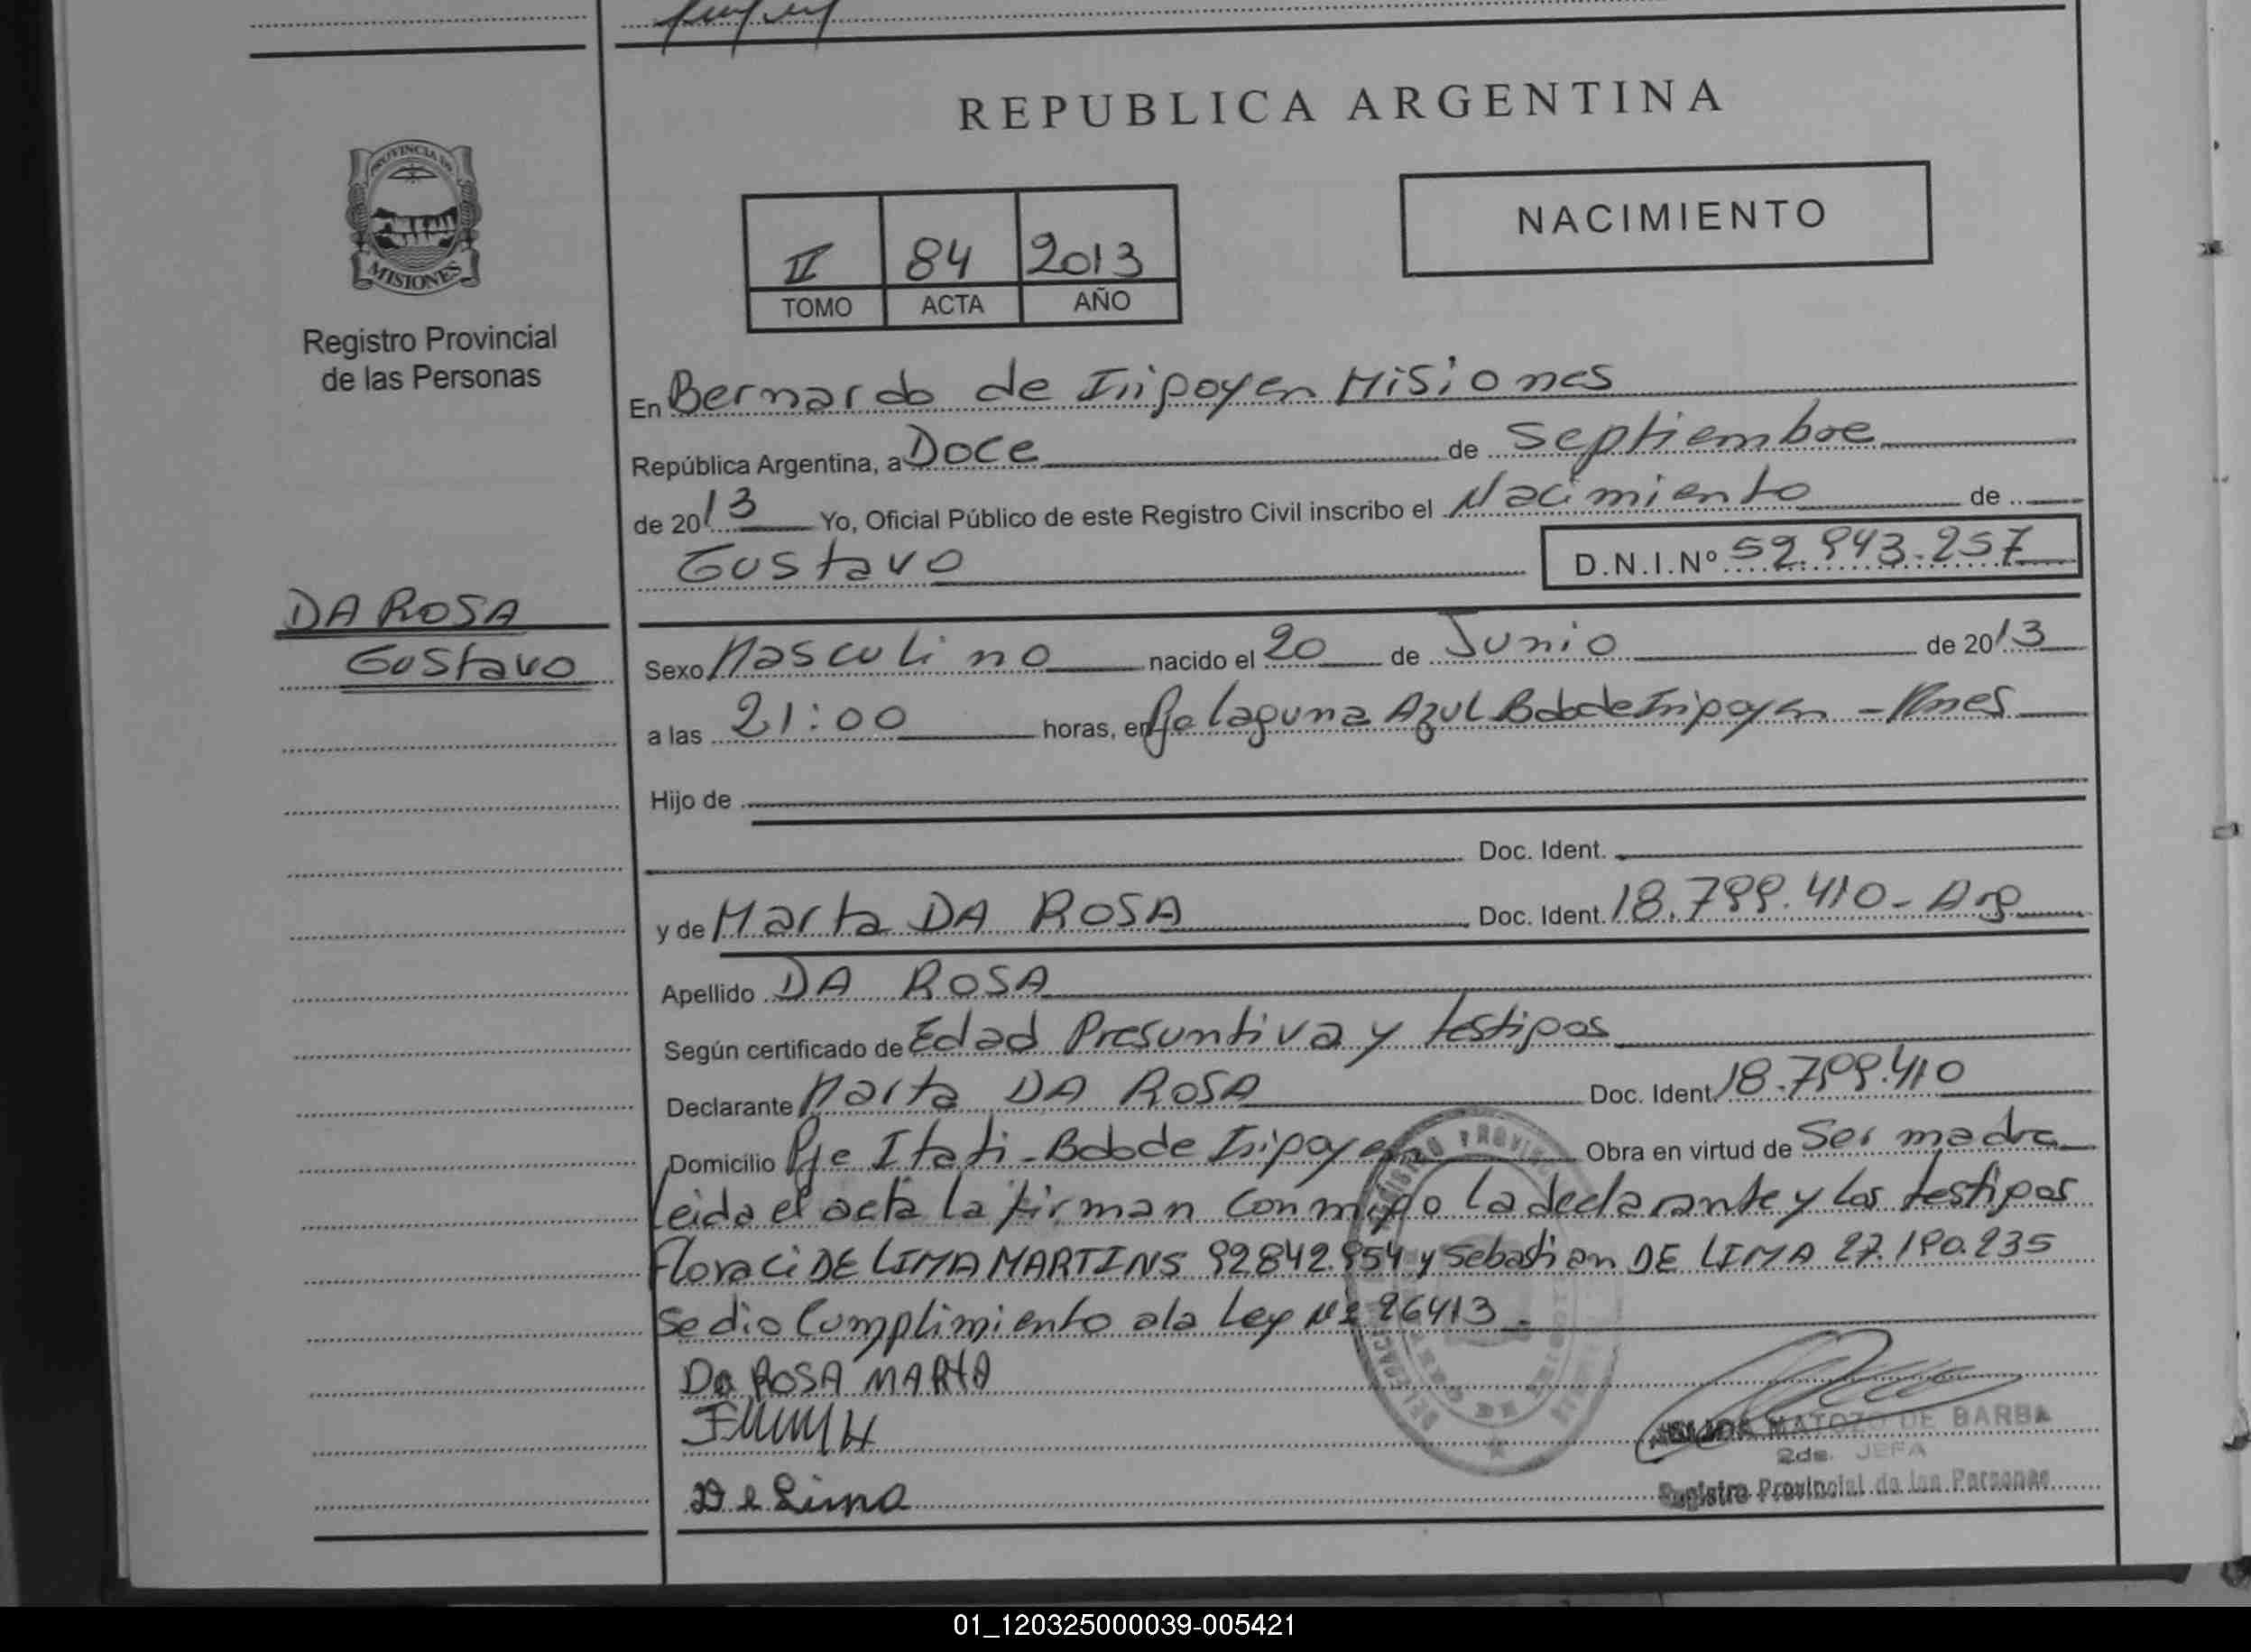 REPUBLICA ARGENTINA
PROVINCIA DE
MISIONES
Registro Provincial
de las Personas
NACIMIENTO
II 84 2013
TOMO ACTA AÑO
En Bernardo de Iripoyen Misiones
República Argentina, a Doce de Septiembre
de 2013 Yo, Oficial Público de este Registro Civil inscribo el Nacimiento de
Gustavo D.N.I.Nº 52.943.257
DA ROSA
Gustavo
Sexo Masculino nacido el 20 de Junio de 2013
a las 21:00 horas, en Pje Laguna Azul Bdo de Iripoyen - Mnes
Hijo de
Doc. Ident.
y de Marta DA ROSA Doc. Ident. 18.799.410 - Arg
Apellido DA ROSA
Según certificado de Edad Presuntiva y testipos
Declarante Marta DA ROSA Doc. Ident. 18.799.410
Domicilio Pje Itati - Bdo de Iripoyen Obra en virtud de Ser madre
Leida el acta la firman conmigo la declarante y los testipos
Floraci DE LIMA MARTINS 92842.954 y Sebastian DE LIMA 27.190.235
Se dio Cumplimiento a la Ley Nº 26413.
Da ROSA MARtA
De Lima
MATOZO DE BARBA
2da. JEFA
Registro Provincial de las Personas
01_120325000039-005421